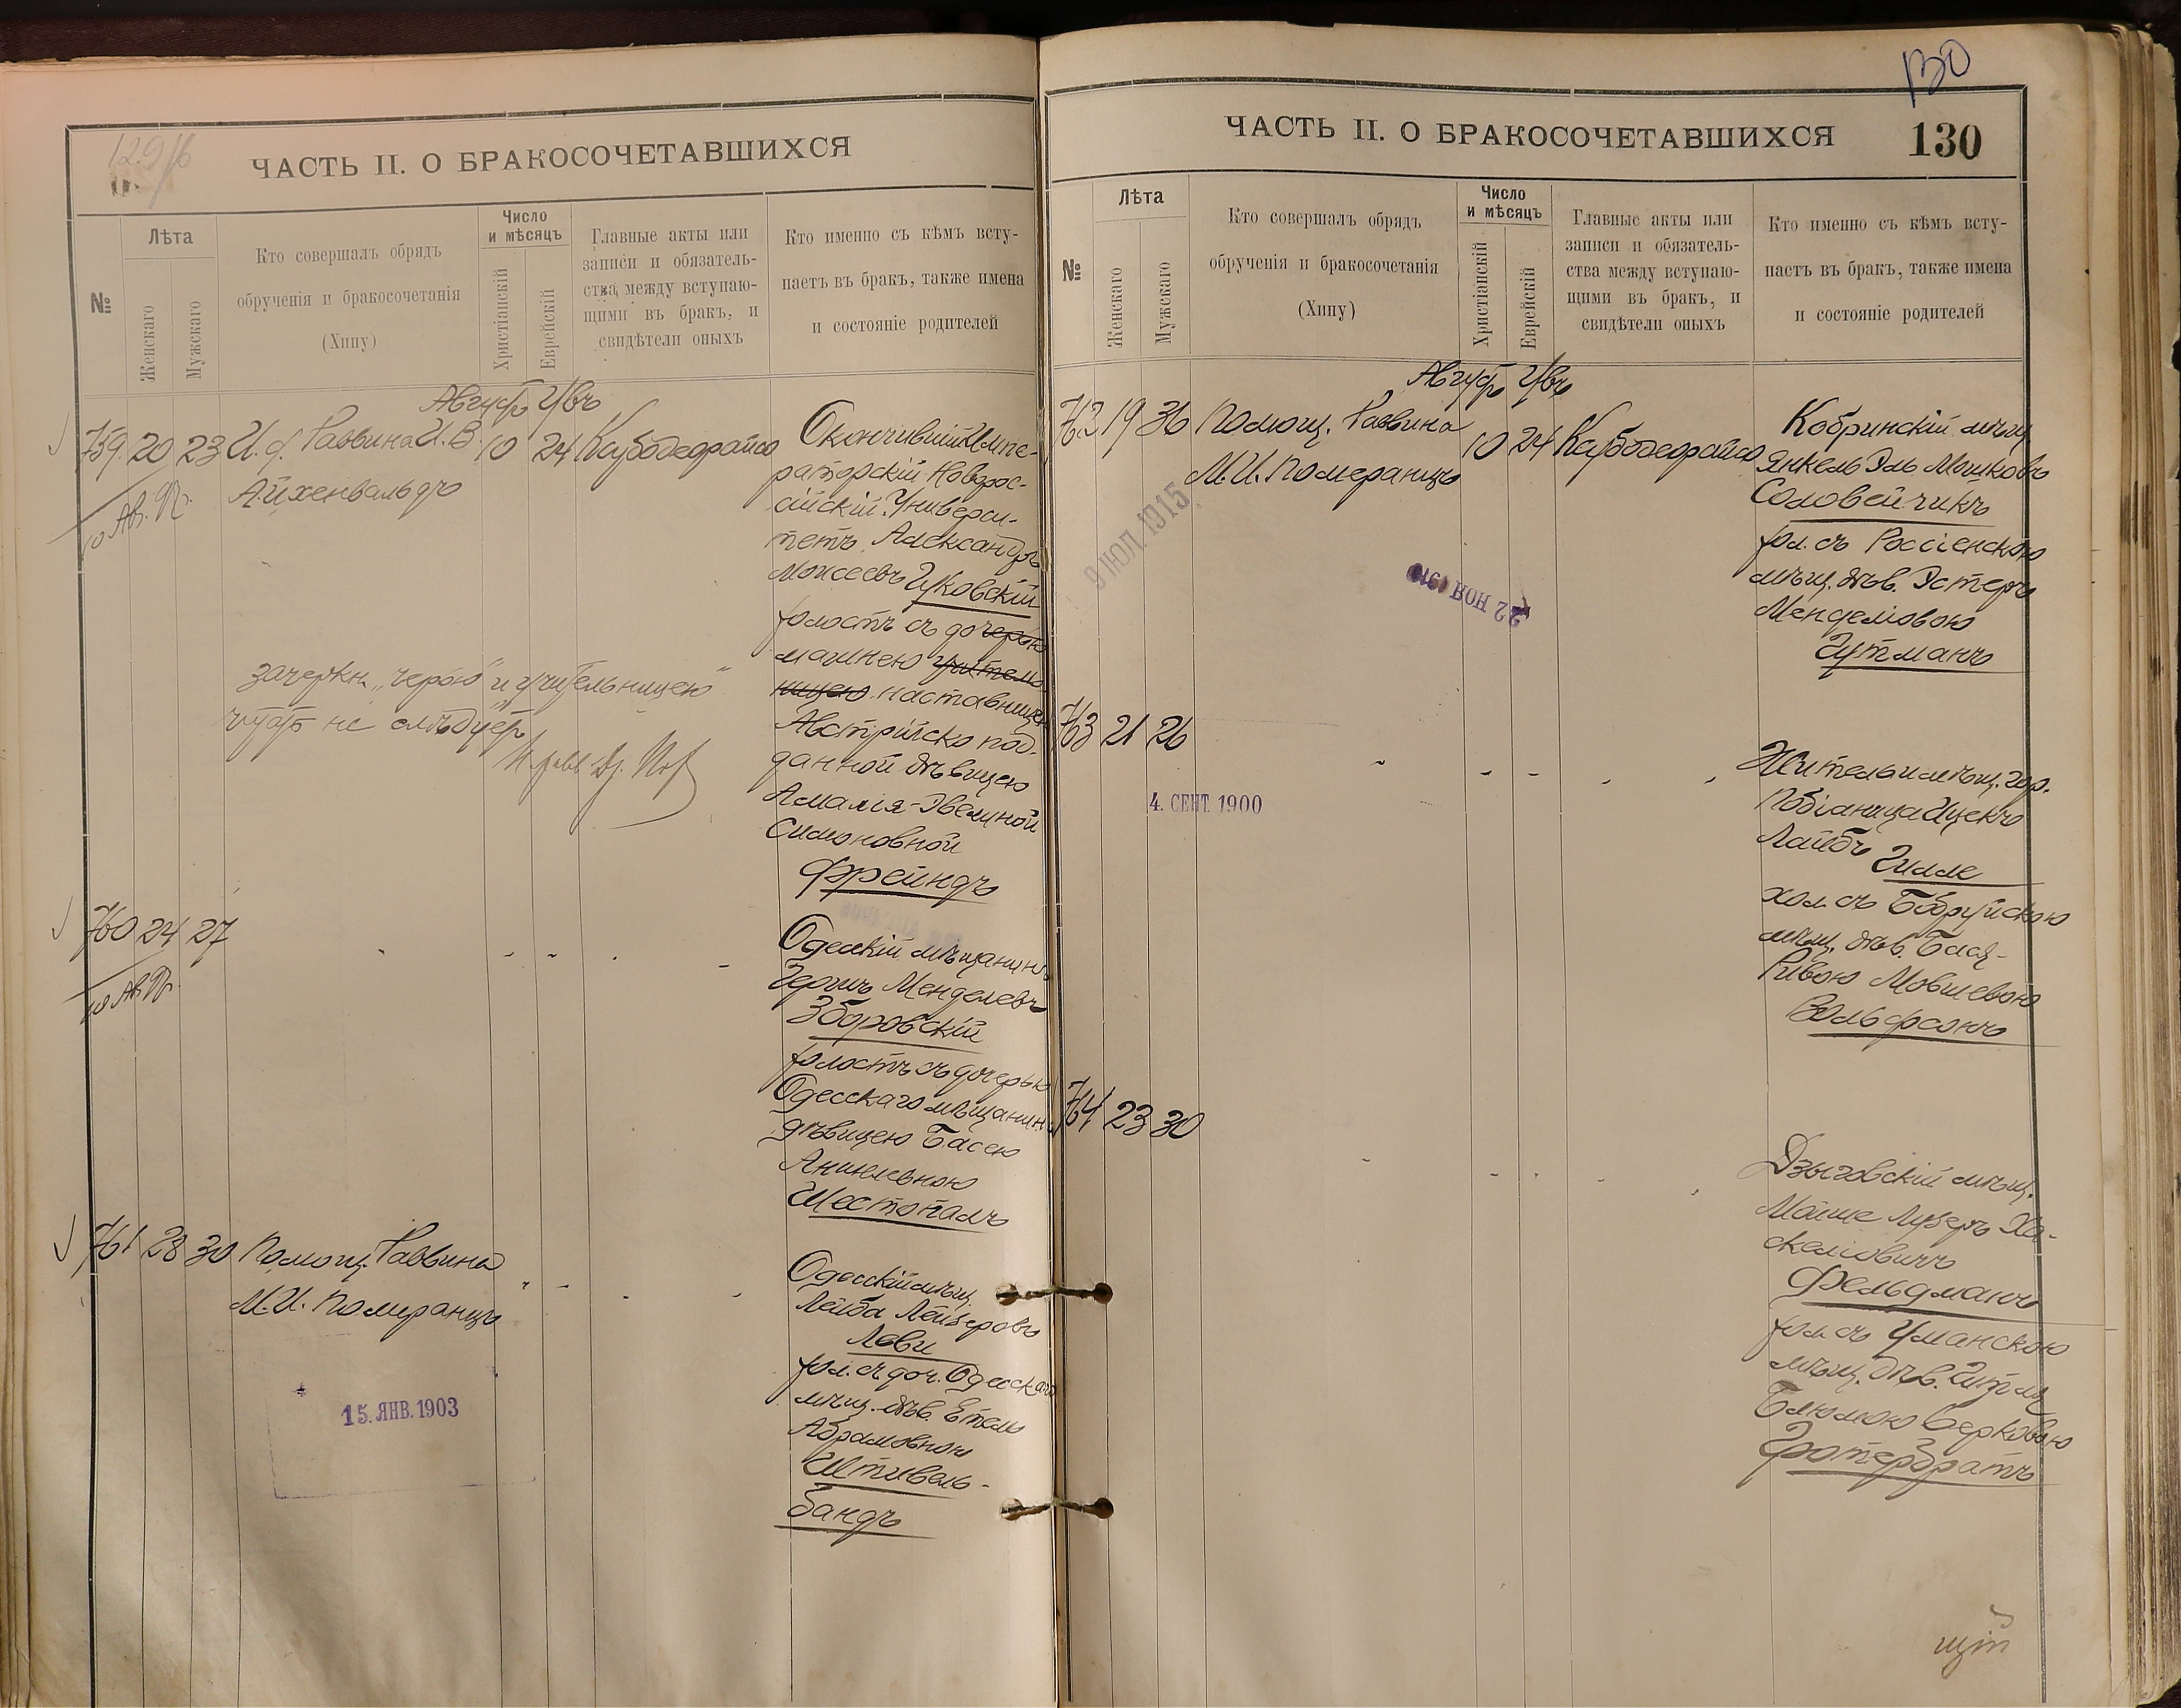 129/б
ЧАСТЬ II. О БРАКОСОЧЕТАВШИХСЯ
№
Лѣта
Женскаго
Мужскаго
Кто совершалъ обрядъ
обрученія и бракосочетанія
(Хипу)
Число
и мѣсяцъ
Христіанскій
Еврейскій
Главные акты или
записи и обязатель-
ства между вступаю-
щими въ бракъ, и
свидѣтели оныхъ
Кто именно съ кѣмъ всту-
паетъ въ бракъ, также имена
и состояніе родителей
759 20 23 И. д. Раввина И. В. 10 24
Айхенвальдъ
Окончившій Импе-
раторскій Новорос-
сійскій Универси-
тетъ Александръ
Моисеевъ Чуковскій
холостъ съ дочерью
машнею учитель-
ницею наставницею
Австрійско под-
данной дѣвицею
Амалія-Эвелиной
Симоновной
Фрейндъ
зачеркн. „черью" и „учительницею"
читать не слѣдуетъ
760 24 27
Одесскій мѣщанинъ
Гершъ Менделевъ
Зборовскій
холостъ съ дочерью
Одесскаго мѣщанина
дѣвицею Басею
Шестопалъ
761 28 30 Помощ. Раввина
М. И. Померанцъ
Одесскій мѣщ.
Лейба Лейзеровъ
Леви
хол. съ доч. Одесскаго
мѣщ. дѣв. Етель
Абрамовною
Штивель-
бандъ
15. ЯНВ. 1903
130
ЧАСТЬ II. О БРАКОСОЧЕТАВШИХСЯ
130
№
Лѣта
Женскаго
Мужскаго
Кто совершалъ обрядъ
обрученія и бракосочетанія
(Хипу)
Число
и мѣсяцъ
Христіанскій
Еврейскій
Главные акты или
записи и обязатель-
ства между вступаю-
щими въ бракъ, и
свидѣтели оныхъ
Кто именно съ кѣмъ всту-
паетъ въ бракъ, также имена
и состояніе родителей
762 19 36 Помощ. Раввина 10 24
М. И. Померанцъ
9 ІЮЛ. 1915
22 НОЯ
Кобринскій мѣщ.
Янкель Эль Мошковъ
Соловейчикъ
хол. съ Россіенскою
мѣщ. дѣв. Эстеръ
Менделовою
Гутманъ
763 21 26
4. СЕНТ. 1900
Житель и мѣщ. гор.
Побіаница Ицекъ
Лайбъ Гилле
хол. съ Бобруйскою
мѣщ. дѣв. Бася-
Ривою Мовшевою
Вольфсонъ
764 23 30
Дзыговскій мѣщ.
Мойше Лузеръ Ха-
скелиовичъ
Фельдманъ
хол. съ Уманскою
мѣщ. дѣв.
Блюмою Берковою
Гротерзратъ
щій